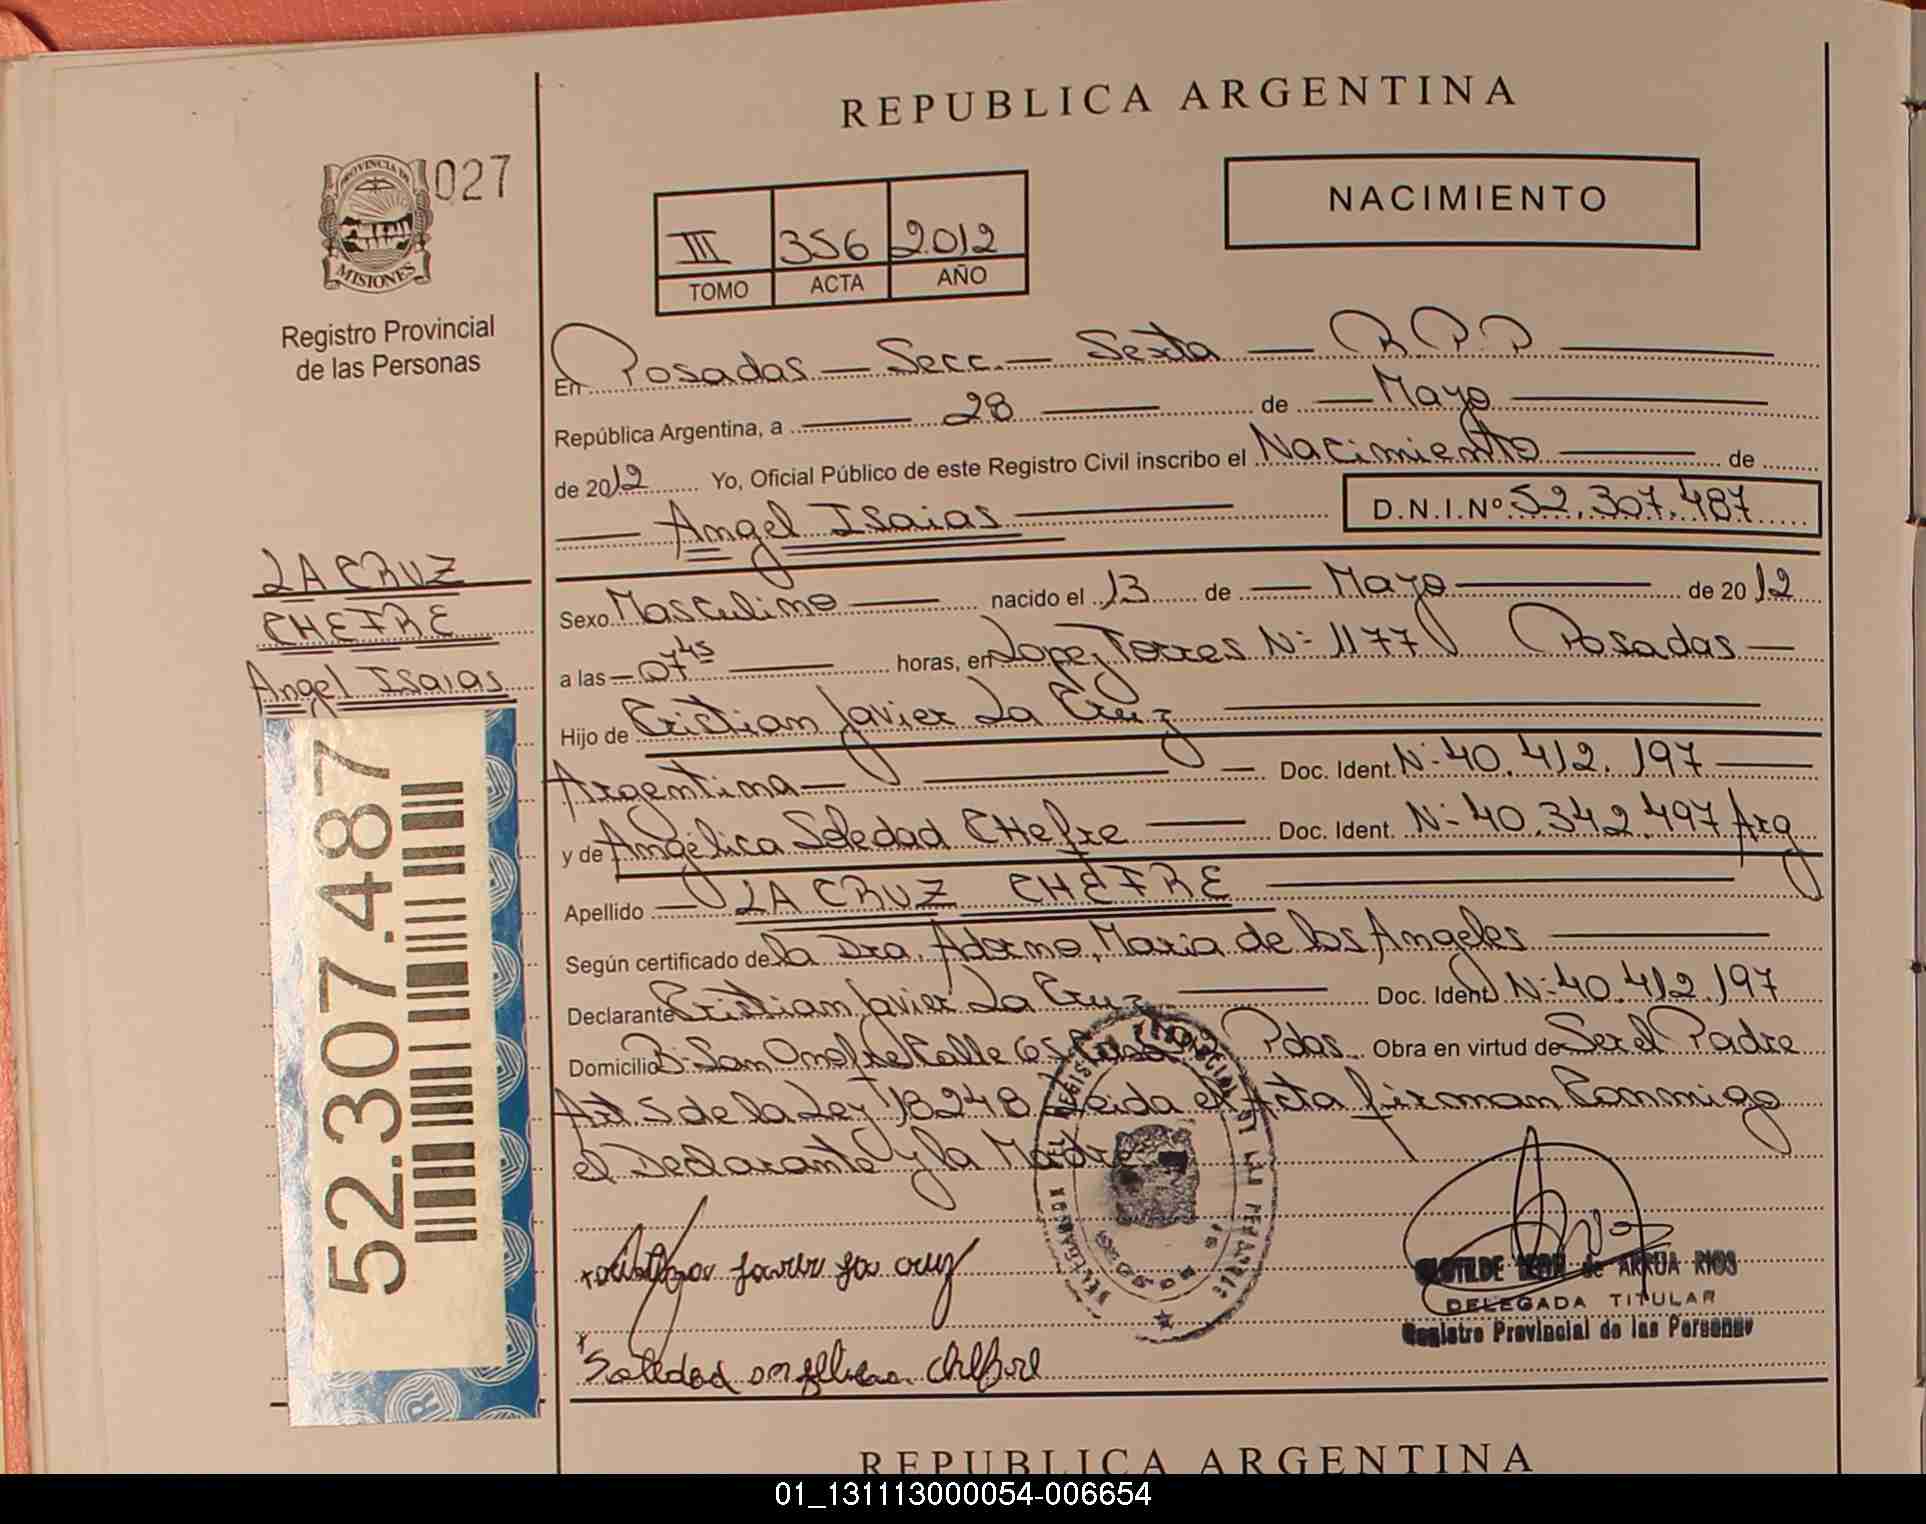 REPUBLICA ARGENTINA
NACIMIENTO
027
PROVINCIA DE
MISIONES
Registro Provincial
de las Personas
III 356 2012
TOMO ACTA AÑO
En Posadas — Secc. — Sexta — R.P.P
República Argentina, a 28 de Mayo
de 2012 Yo, Oficial Público de este Registro Civil inscribo el Nacimiento de
Angel Isaias D.N.I.Nº 52.307.487
LA CRUZ
CHEFRE
Angel Isaias
52.307.487
Sexo Masculino nacido el 13 de Mayo de 2012
a las 07 45 horas, en Lopez Torres Nº 1177 Posadas
Hijo de Cristian Javier La Cruz
Argentina Doc. Ident. Nº 40.412.197
y de Angélica Soledad CHefre Doc. Ident. Nº 40.342.497 Arg
Apellido LA CRUZ CHEFRE
Según certificado de la Dra. Adorno, Maria de los Angeles
Declarante Cristian Javier La Cruz Doc. Ident. Nº 40.412.197
Domicilio Bº San Onofre Calle Pdas. Obra en virtud de Ser el Padre
Art. 5 de la Ley 18248 Leida el Acta firman Conmigo
el Declarante y la Madre
javier la cruz
Soledad
DELEGADA TITULAR
Registro Provincial de las Personas
REPUBLICA ARGENTINA
01_131113000054-006654